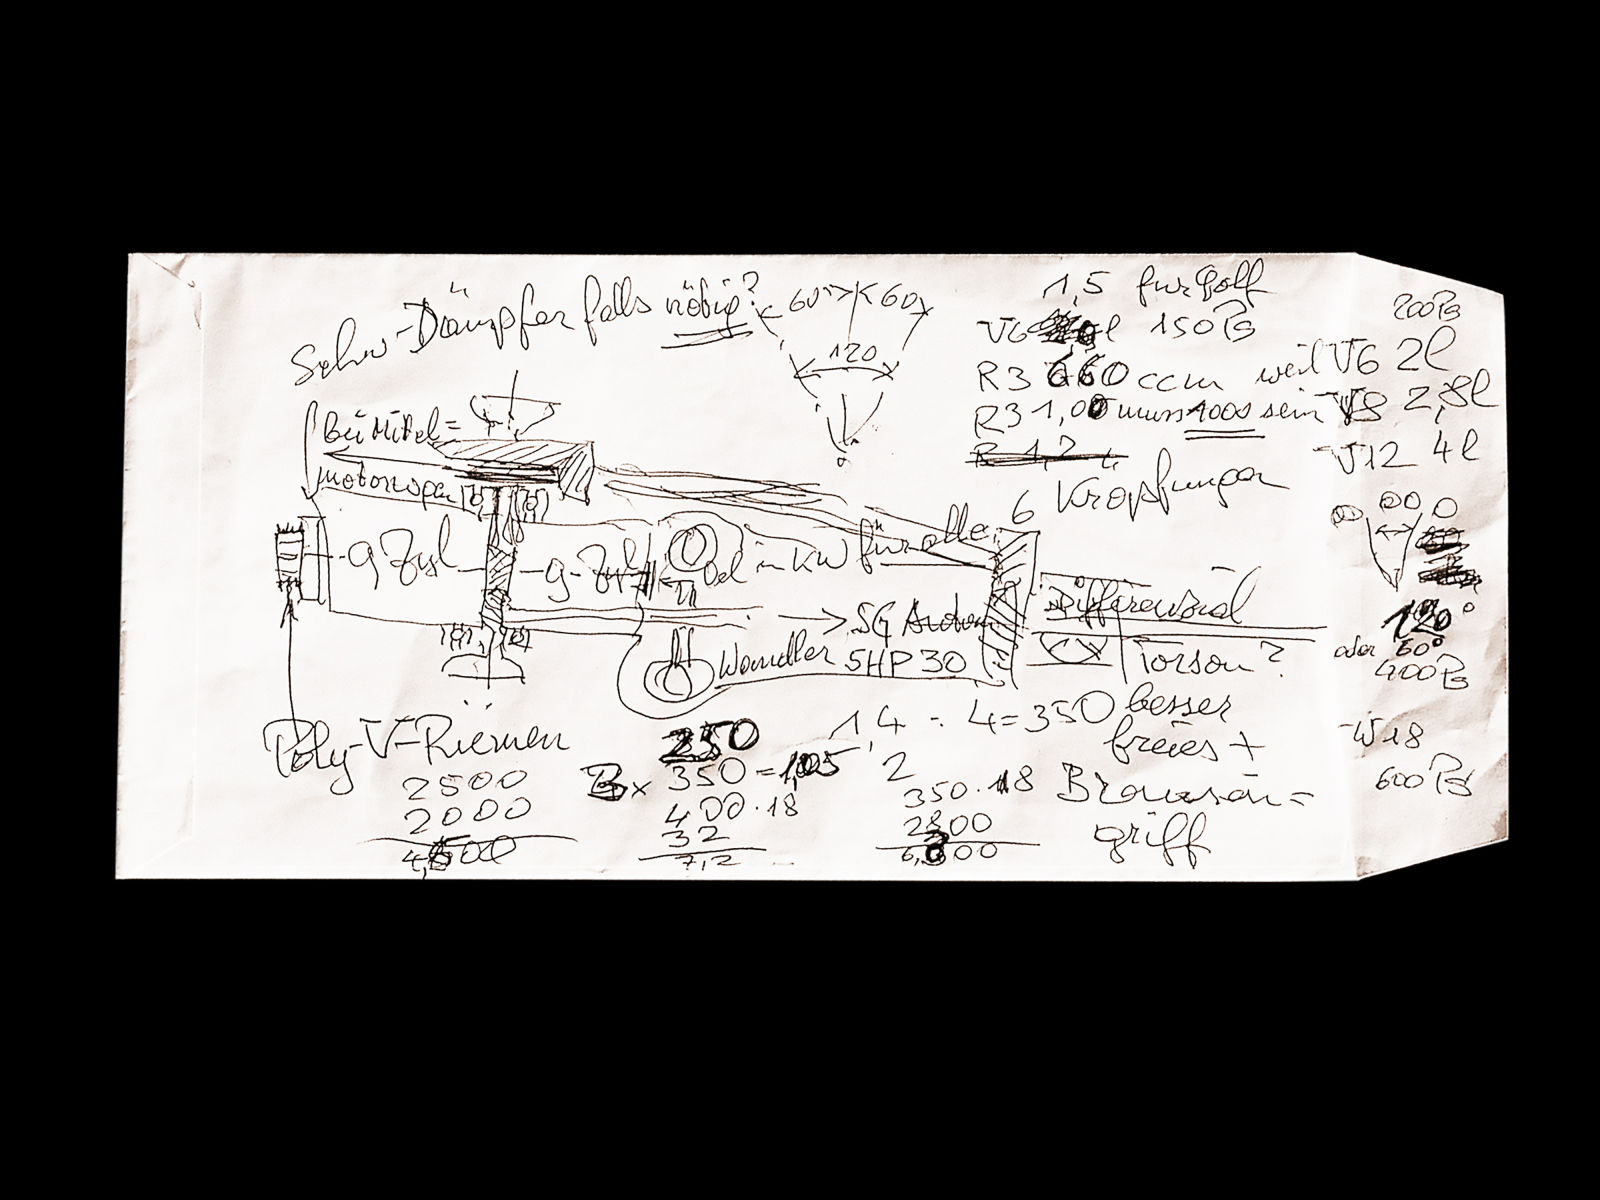 Schw-Dämpfer falls nötig?
60° 60
120
1,5 fur Golf
V6 l 150 PS
R3 660 ccm weil V6 2l
R3 1,00 muss 1000 sein V8 2,8l
R 1,2 L
V12 4l
200 PS
6 Kröpfungen
Bei Mittel=
motorwagen
9 Zyl 9-Zyl
Öl in KW für alle
Differenzial
SG
Wandler 5HP 30
Torsen?
besser
freies +
Browsin=
griff
120°
oder 60°
400 PS
W18
600 PS
Poly-V-Riemen
2500
2000
4500
250
x 350 = 1,05
400·18
32
7,2
1,4 : 4=350
2
350·18
2800
6,300